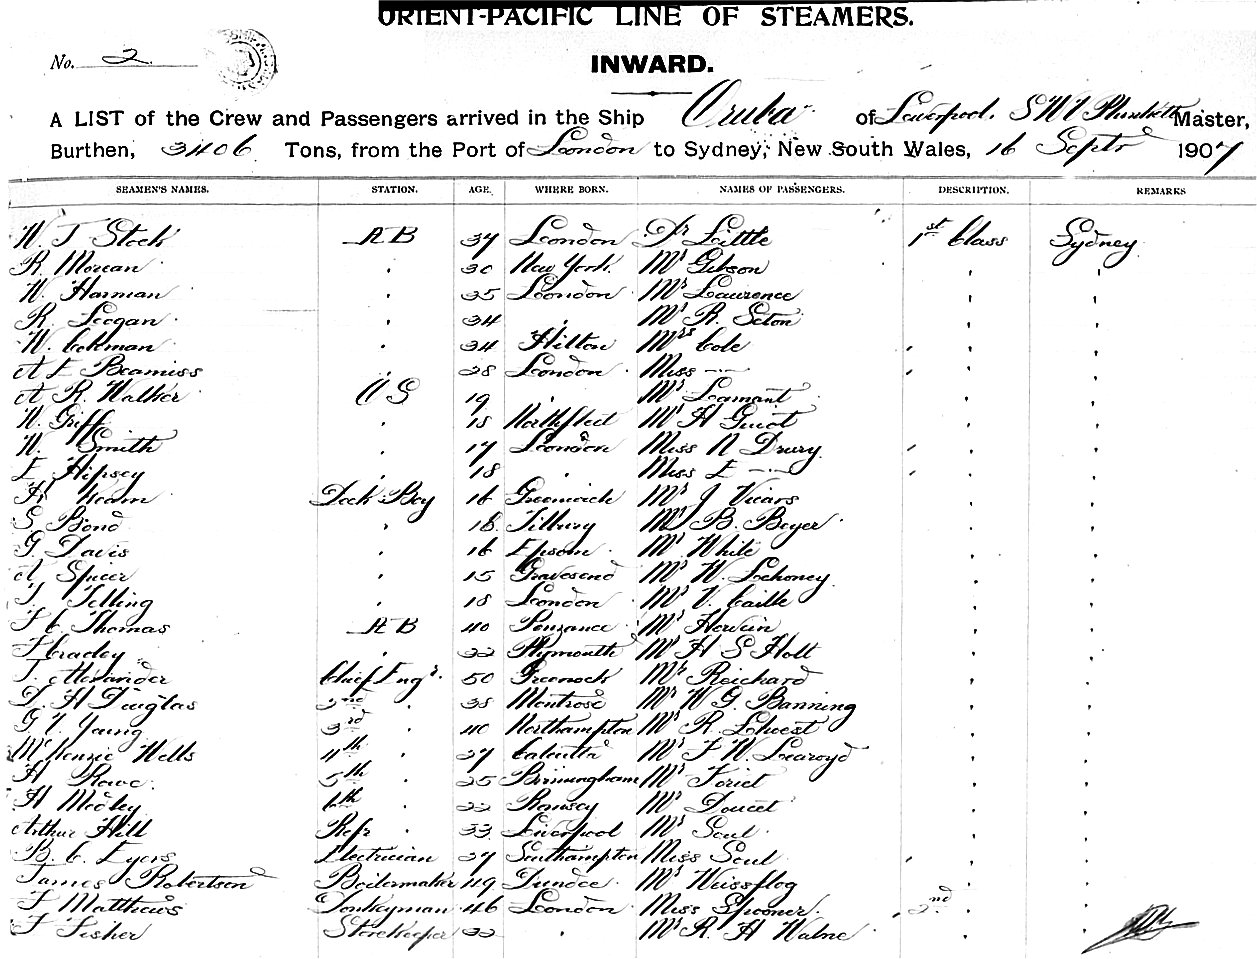 ORIENT-PACIFIC LINE OF STEAMERS.
No. 2.
INWARD.
A LIST of the Crew and Passengers arrived in the Ship Oruba of Liverpool. Master,
Burthen, 3406 Tons, from the Port of London to Sydney, New South Wales, 16 Septr 1907
SEAMEN'S NAMES. STATION. AGE. WHERE BORN. NAMES OF PASSENGERS. DESCRIPTION. REMARKS
W. J Stock AB 37 London Dr Little 1st Class Sydney
R. Morean " 30 New York. Mr Gibson " "
W. Harman " 35 London Mr Laurence " "
R. Leegan " 34 " Mr R. Seton " "
W. Cokman " 34 Hilton Mrs Cole " "
A E Beamiss " 28 London Miss — " "
A R. Walker OS 19 " Mr Leamant " "
W. Griff " 18 Northfleet Mr H Guiot " "
W. Smith " 17 London Miss N Drury " "
E Hipsey " 18 " Miss E — " "
Deck Boy 16 Greenwich Mr J Vicars " "
S. Bond " 16 Tilbury Mr B. Beyer " "
G. Davis " 16 Epsom Mr White " "
A Spicer " 15 Gravesend Mr W. Lehoney " "
Telling " 18 London Mr V. Caille " "
Thomas AB 40 Penzance Mr Hervein " "
" 22 Plymouth Mr H S Holt " "
Alexander Chief Engr. 50 Greenock Mr Reichard " "
D. H Douglas 2nd " 38 Montrose Mr W G. Banning " "
G. Y. Young 3rd 40 Northampton Mr R. Lhoest " "
McKenzie Wells 4th " 27 Calcutta Mr F W. Learoyd " "
H Rowe 5th " 25 Birmingham Mr Toriet " "
H Medley 6th " 22 Ramsey Mr Doucet " "
Arthur Hill Refr " 33 Liverpool Mr Soul " "
B. C. Eyers Electrician 27 Southampton Miss Soul " "
James Robertson Boilermaker 49 Dundee Mr Weissflog " "
F Matthews Donkeyman 46 London Miss Spooner. 2nd " "
F Fisher Storekeeper 33 " Mr R. H Walne " "